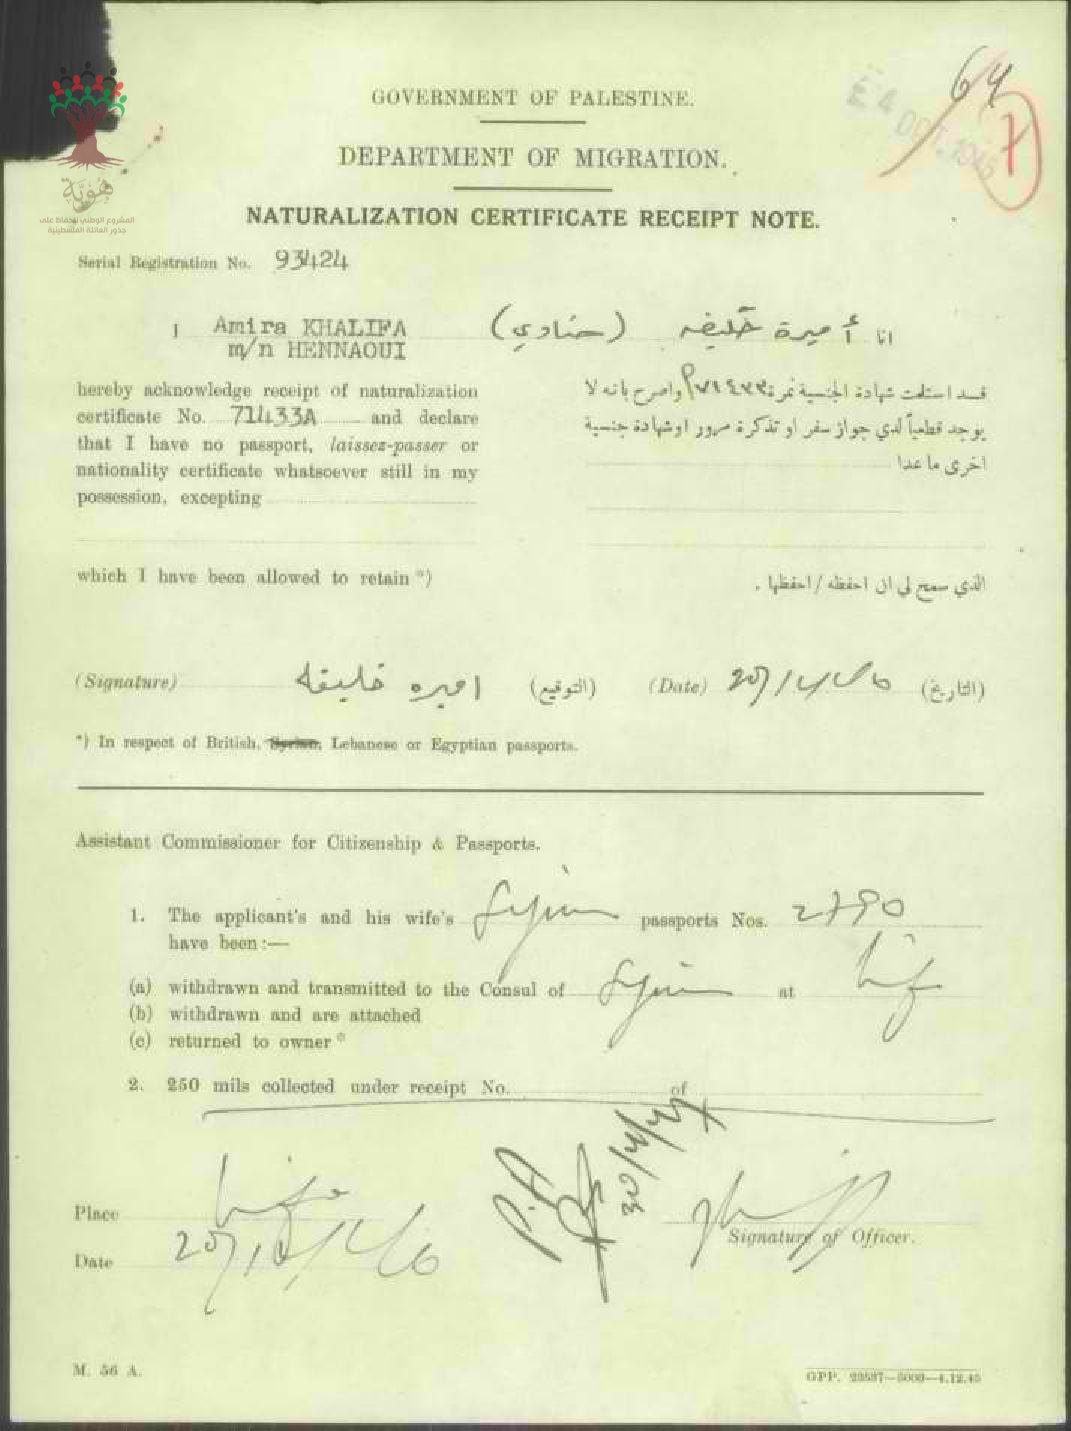 GOVERNMENT OF PALESTINE.
64
DEPARTMENT OF MIGRATION.
OCT. 1946
NATURALIZATION CERTIFICATE RECEIPT NOTE.
هوية
المشروع الوطني للحفاظ على
جذور العائلة الفلسطينية
Serial Registration No. 93424
I Amira KHALIFA
m/n HENNAOUI
انا أميرة خليفه (حناوي)
hereby acknowledge receipt of naturalization
certificate No. 71433A and declare
that I have no passport, laissez-passer or
nationality certificate whatsoever still in my
possession, excepting
قد استلمت شهادة الجنسية نمرة ٧١٤٣٣ واصرح بانه لا
يوجد قطعياً لدي جواز سفر او تذكرة مرور او شهادة جنسية
اخرى ما عدا
which I have been allowed to retain *)
الذي سمح لي ان احفظه / احفظها .
(Signature) اميره خليفه (التوقيع) (Date) (التاريخ)
*) In respect of British, Syrian, Lebanese or Egyptian passports.
Assistant Commissioner for Citizenship & Passports.
1. The applicant's and his wife's Syrian passports Nos. 2790
have been:—
(a) withdrawn and transmitted to the Consul of Syrian at
(b) withdrawn and are attached
(c) returned to owner *
2. 250 mils collected under receipt No. of
Place
Signature of Officer.
Date
M. 56 A.
GPP. 23537—5000—4.12.45